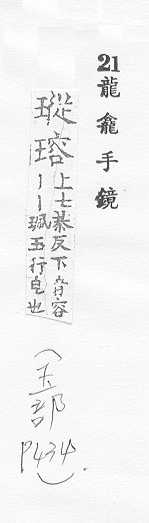 21龍龕手鏡
瑽瑢上七恭反下音容
丨丨珮玉行皃也
(玉部 P434).